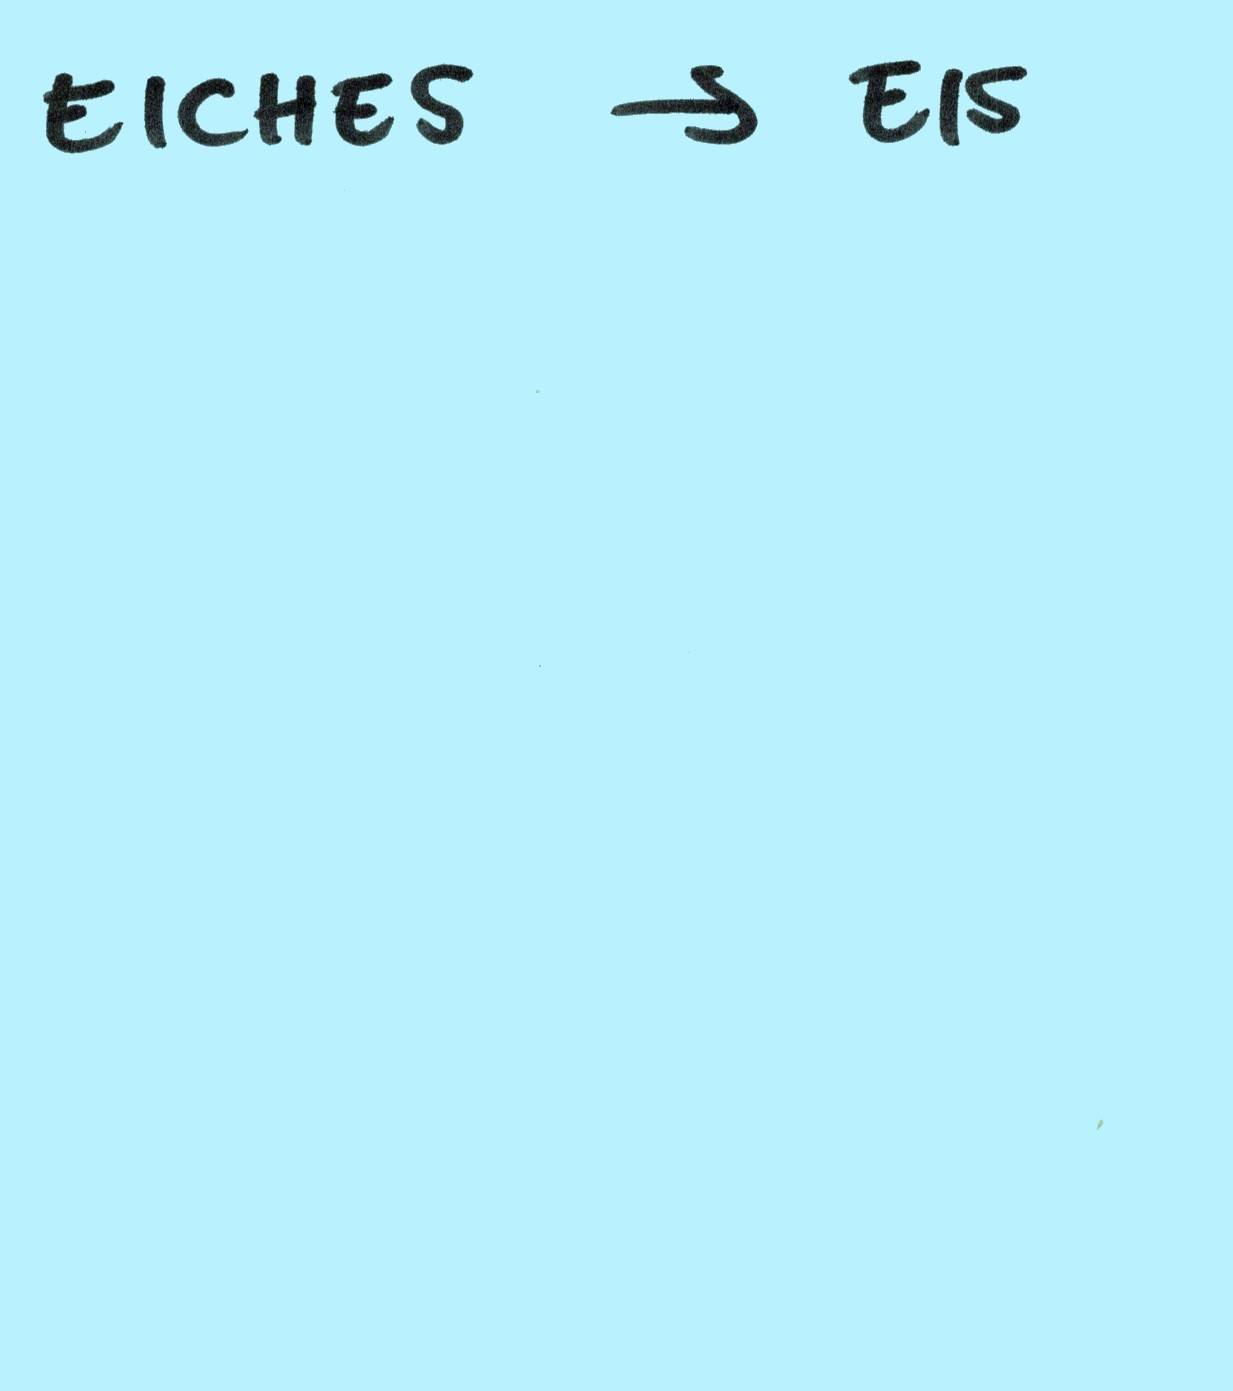 EICHES → EIS